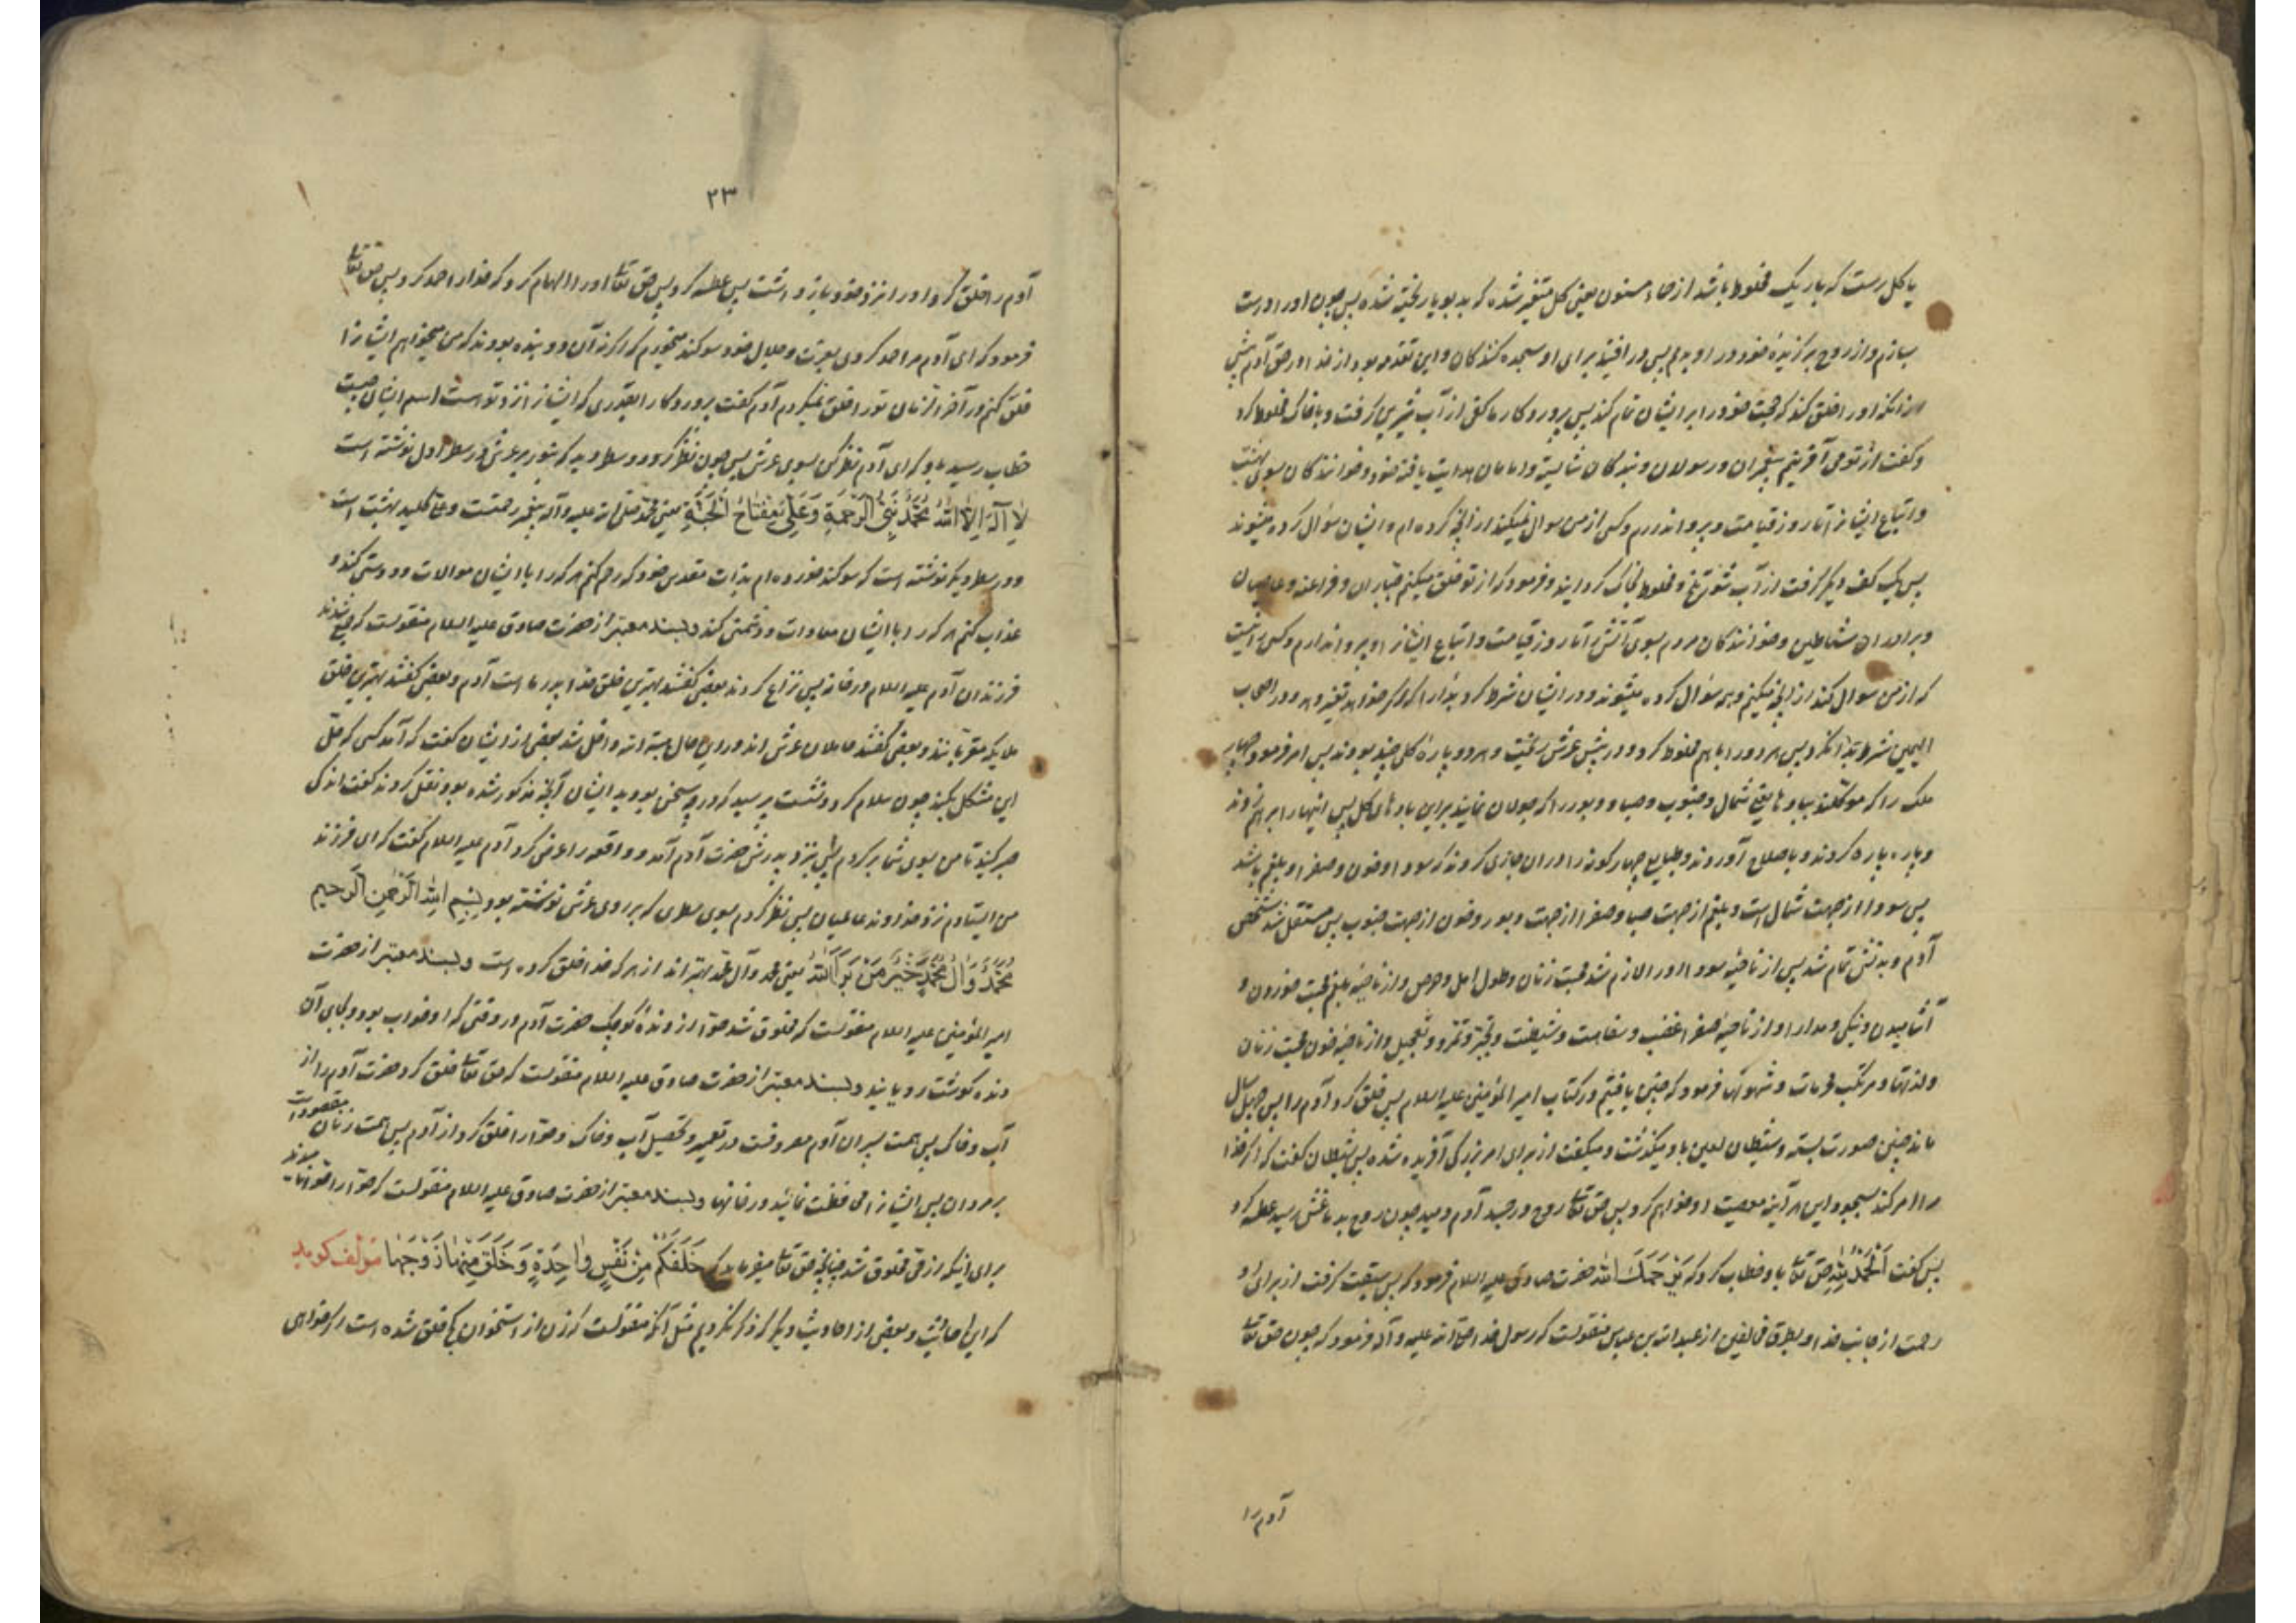 یا کل رست که باریک مخلوط باشد از حماء مسنون یعنی کل متغیر شده که بدبو یا ریخته شده پس چون او را درست
بسازم و از روح برگزیدهٔ خود در او بدمم پس در افتید برای او سجده کنندگان و این تقدمه بود از خدا در حق آدم پیش
از آنکه او را خلق کند که حجت خود را بر ایشان تمام کند پس پروردکار ما کفی از آب شیرین گرفت و با خاک مخلوط کرد
و گفت از تو می آفرینم پیغمبران و رسولان و بندگان شایسته و امامان هدایت یافته خود و خوانندگان بسوی بهشت
و اتباع ایشانرا تا روز قیامت و پروا ندارم و کسی از من سوال نمیکند از آنچه کرده ام و ایشان سؤال کرده میشوند
پس یک کف دیگر گرفت از آب شور تلخ و مخلوط بخاک گردانید و فرمود که از تو خلق میکنم جباران و فراعنه و عاصیان
و برادران شیاطین و خوانندگان مردم بسوی آتش تا روز قیامت و اتباع ایشانرا و پروا ندارم و کسی را نیست
که از من سوال کند از آنچه میکنم و همه سؤال کرده میشوند و در ایشان شرط کرد بدا را که اگر خواهد تغییر دهد و در اصحاب
الیمین شرط بدا نکرد پس هر دو را با هم مخلوط کرد و در پیش عرش ریخت و هر دو پارهٔ کلی چند بودند پس امر فرمود چهار
ملک را که موکلند ببادها یعنی شمال و جنوب و صبا و دبور را که جولان نمایند بر این پارهای کل پس اینها را بر هم زدند
و پاره پاره کردند و باصلاح آوردند و طبایع چهارگونه را در آن جاری کردند که سودا و خون و صفرا و بلغم باشد
پس سودا از جهت شمال است و بلغم از جهت صبا و صفرا از جهت دبور و خون از جهت جنوب پس مستقل شد شخص
آدم و بدنش تمام شد پس از ناحیهٔ سودا او را لازم شد محبت زنان و طول امل و حرص و از ناحیهٔ بلغم محبت خوردن و
آشامیدن و نیکی و مدارا و از ناحیهٔ صفرا غضب و سفاهت و شیطنت و تجبر و تمرد و تعجیل و از ناحیهٔ خون محبت زنان
و لذتها و مرتکب محرمات و شهوتها فرمود که چنین یافتیم در کتاب امیر المؤمنین علیه السلام پس خلق کرد آدم را پس چهل سال
ماند چنین صورت بسته و شیطان لعین باو میگذشت و میگفت از برای امر بزرگی آفریده شده پس شیطان گفت که اگر خدا
مرا امر کند بسجود این هر آینه معصیت او خواهم کرد پس حق تعالی روح در جسد آدم دمید چون روح بدماغش رسید عطسه کرد
پس گفت اَلْحَمْدُ لِلّهِ حق تعالی باو خطاب کرد که یَرْحَمَكَ اللهُ حضرت صادق علیه السلام فرمود که پس سبقت گرفت از برای او
رحمت از جانب خدا و بطرق مخالفین از عبدالله بن عباس منقولست که رسول خدا صلی الله علیه و آله فرمود که چون حق تعالی
آدم را
۲۳
آدم را خلق کرد او را نزد خود بازداشت پس عطسه کرد پس حق تعالی او را الهام کرد که خدا را حمد کرد پس حق تعالی
فرمود که ای آدم مرا حمد کردی بعزت و جلال خود سوگند میخورم که اگر نه آن دو بنده بودند که من میخواهم ایشانرا
خلق کنم در آخر الزمان تو را خلق نمیکردم آدم گفت پروردکارا بقدری که ایشانرا نزد تو است اسم ایشان چیست
خطاب رسید باو که ای آدم نظر کن بسوی عرش پس چون نظر کرد دو سطر دید که بنور بر عرش در سطر اول نوشته است
لا اِلهَ اِلاَّ اللهُ مُحَمَّدٌ نَبِیُّ الرَّحْمَةِ وَ عَلِیٌّ مِفْتاحُ الْجَنَّةِ یعنی محمد صلی الله علیه و آله پیغمبر رحمتست و علی کلید بهشت است
و در سطر دیگر نوشته است که سوگند خورده ام بذات مقدس خود که رحم کنم هر که را با ایشان موالات و دوستی کند و
عذاب کنم هر که را با ایشان معادات و دشمنی کند و بسند معتبر از حضرت صادق علیه السلام منقولست که جمع شدند
فرزندان آدم علیه السلام در خانه پس نزاع کردند بعضی گفتند بهترین خلق خدا پدر ما است آدم و بعضی گفتند بهترین خلق
ملایکه مقربانند و بعضی گفتند حاملان عرش اند در این حال هبة الله داخل شد بعضی از ایشان گفت که آمد کسی که حل
این مشکل بکند چون سلام کرد و نشست پرسید که در چه سخن بودید ایشان آنچه مذکور شده بود نقل کردند گفت اندکی
صبر کنید تا من بسوی شما بر گردم پس بنزد پدرش حضرت آدم آمد و واقعه را عرض کرد آدم علیه السلام گفت که ای فرزند
من ایستادم نزد خداوند عالمیان پس نظر کردم بسوی سطری که بر روی عرش نوشته بود بِسْمِ اللهِ الرَّحْمنِ الرَّحیمِ
مُحَمَّدٌ وَ آلُ مُحَمَّدٍ خَیْرُ مَنْ بَرَأَ اللهُ یعنی محمد و آل محمد بهتراند از هر که خدا خلق کرده است و بسند معتبر از حضرت
امیر المؤمنین علیه السلام منقولست که مخلوق شد حوا از دندهٔ کوچک حضرت آدم در وقتی که او خواب بود و بجای آن
دنده گوشت رویانید و بسند معتبر از حضرت صادق علیه السلام منقولست که حق تعالی خلق کرد حضرت آدم را از
آب و خاک پس همت پسران آدم مصروفست در تعمیر و تحصیل آب و خاک و حوا را خلق کرد از آدم پس همت زنان مقصور است
بر مردان پس ایشانرا محافظت نمائید در خانها و بسند معتبر از حضرت صادق علیه السلام منقولست که حوا را حوا نامیدند
برای اینکه از حی مخلوق شد چنانچه حق تعالی میفرماید که خَلَقَكُمْ مِنْ نَفْسٍ واحِدَةٍ وَ خَلَقَ مِنْها زَوْجَها مؤلف گوید
که این احادیث و بعضی از احادیث دیگر که ذکر نکردیم مثل آنکه منقولست که زن از استخوان کج خلق شده است اگر خواهی